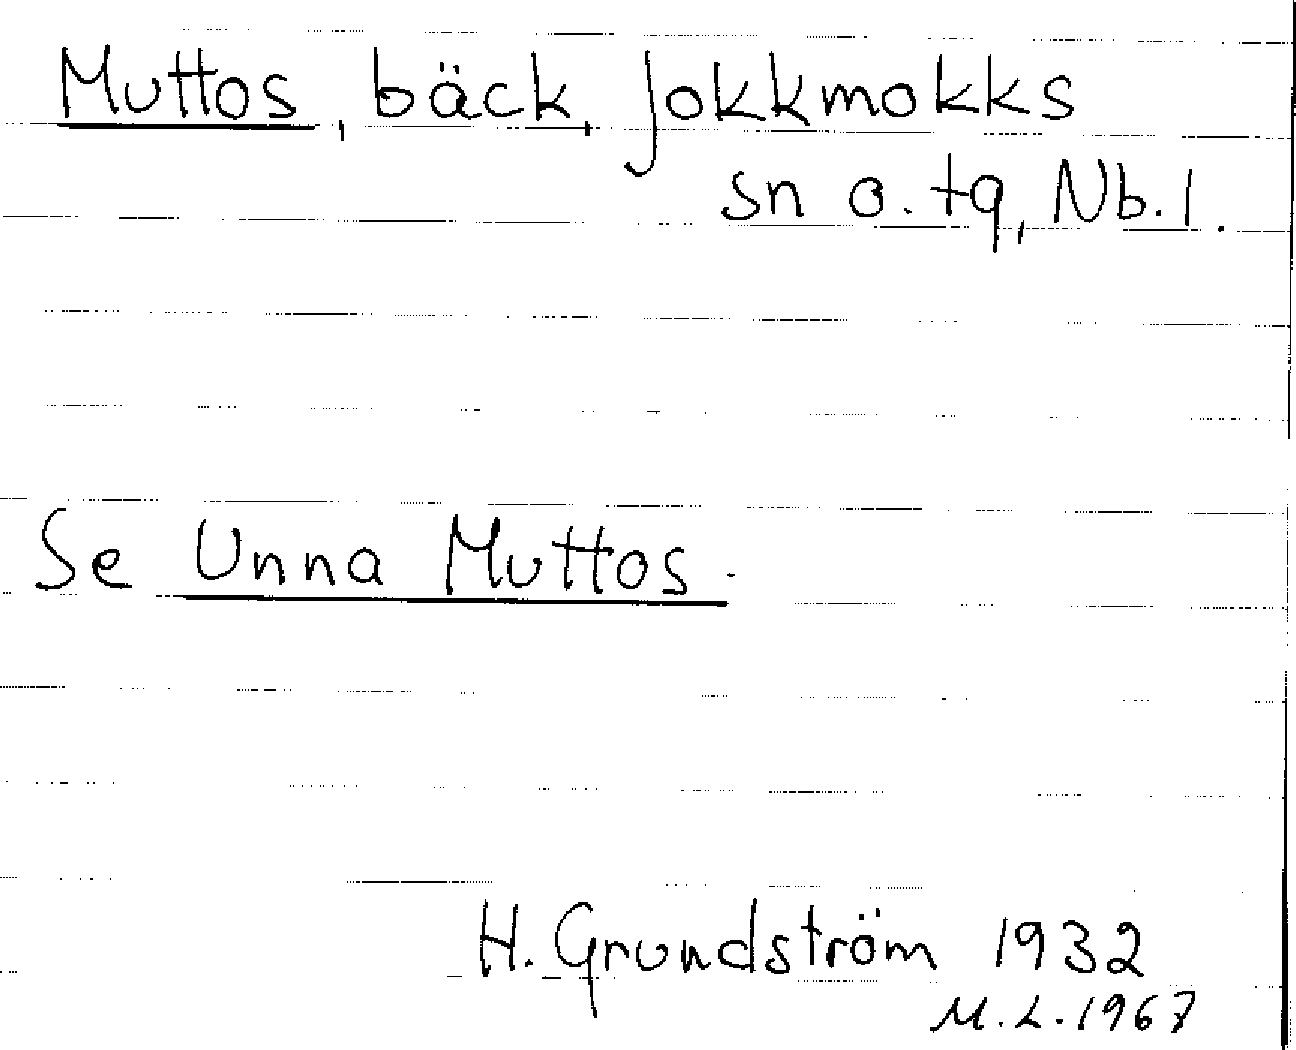 Muttos, bäck, Jokkmokks
sn o. tg, Nb. l.
Se Unna Muttos.
H. Grundström 1932
M.L. 1967